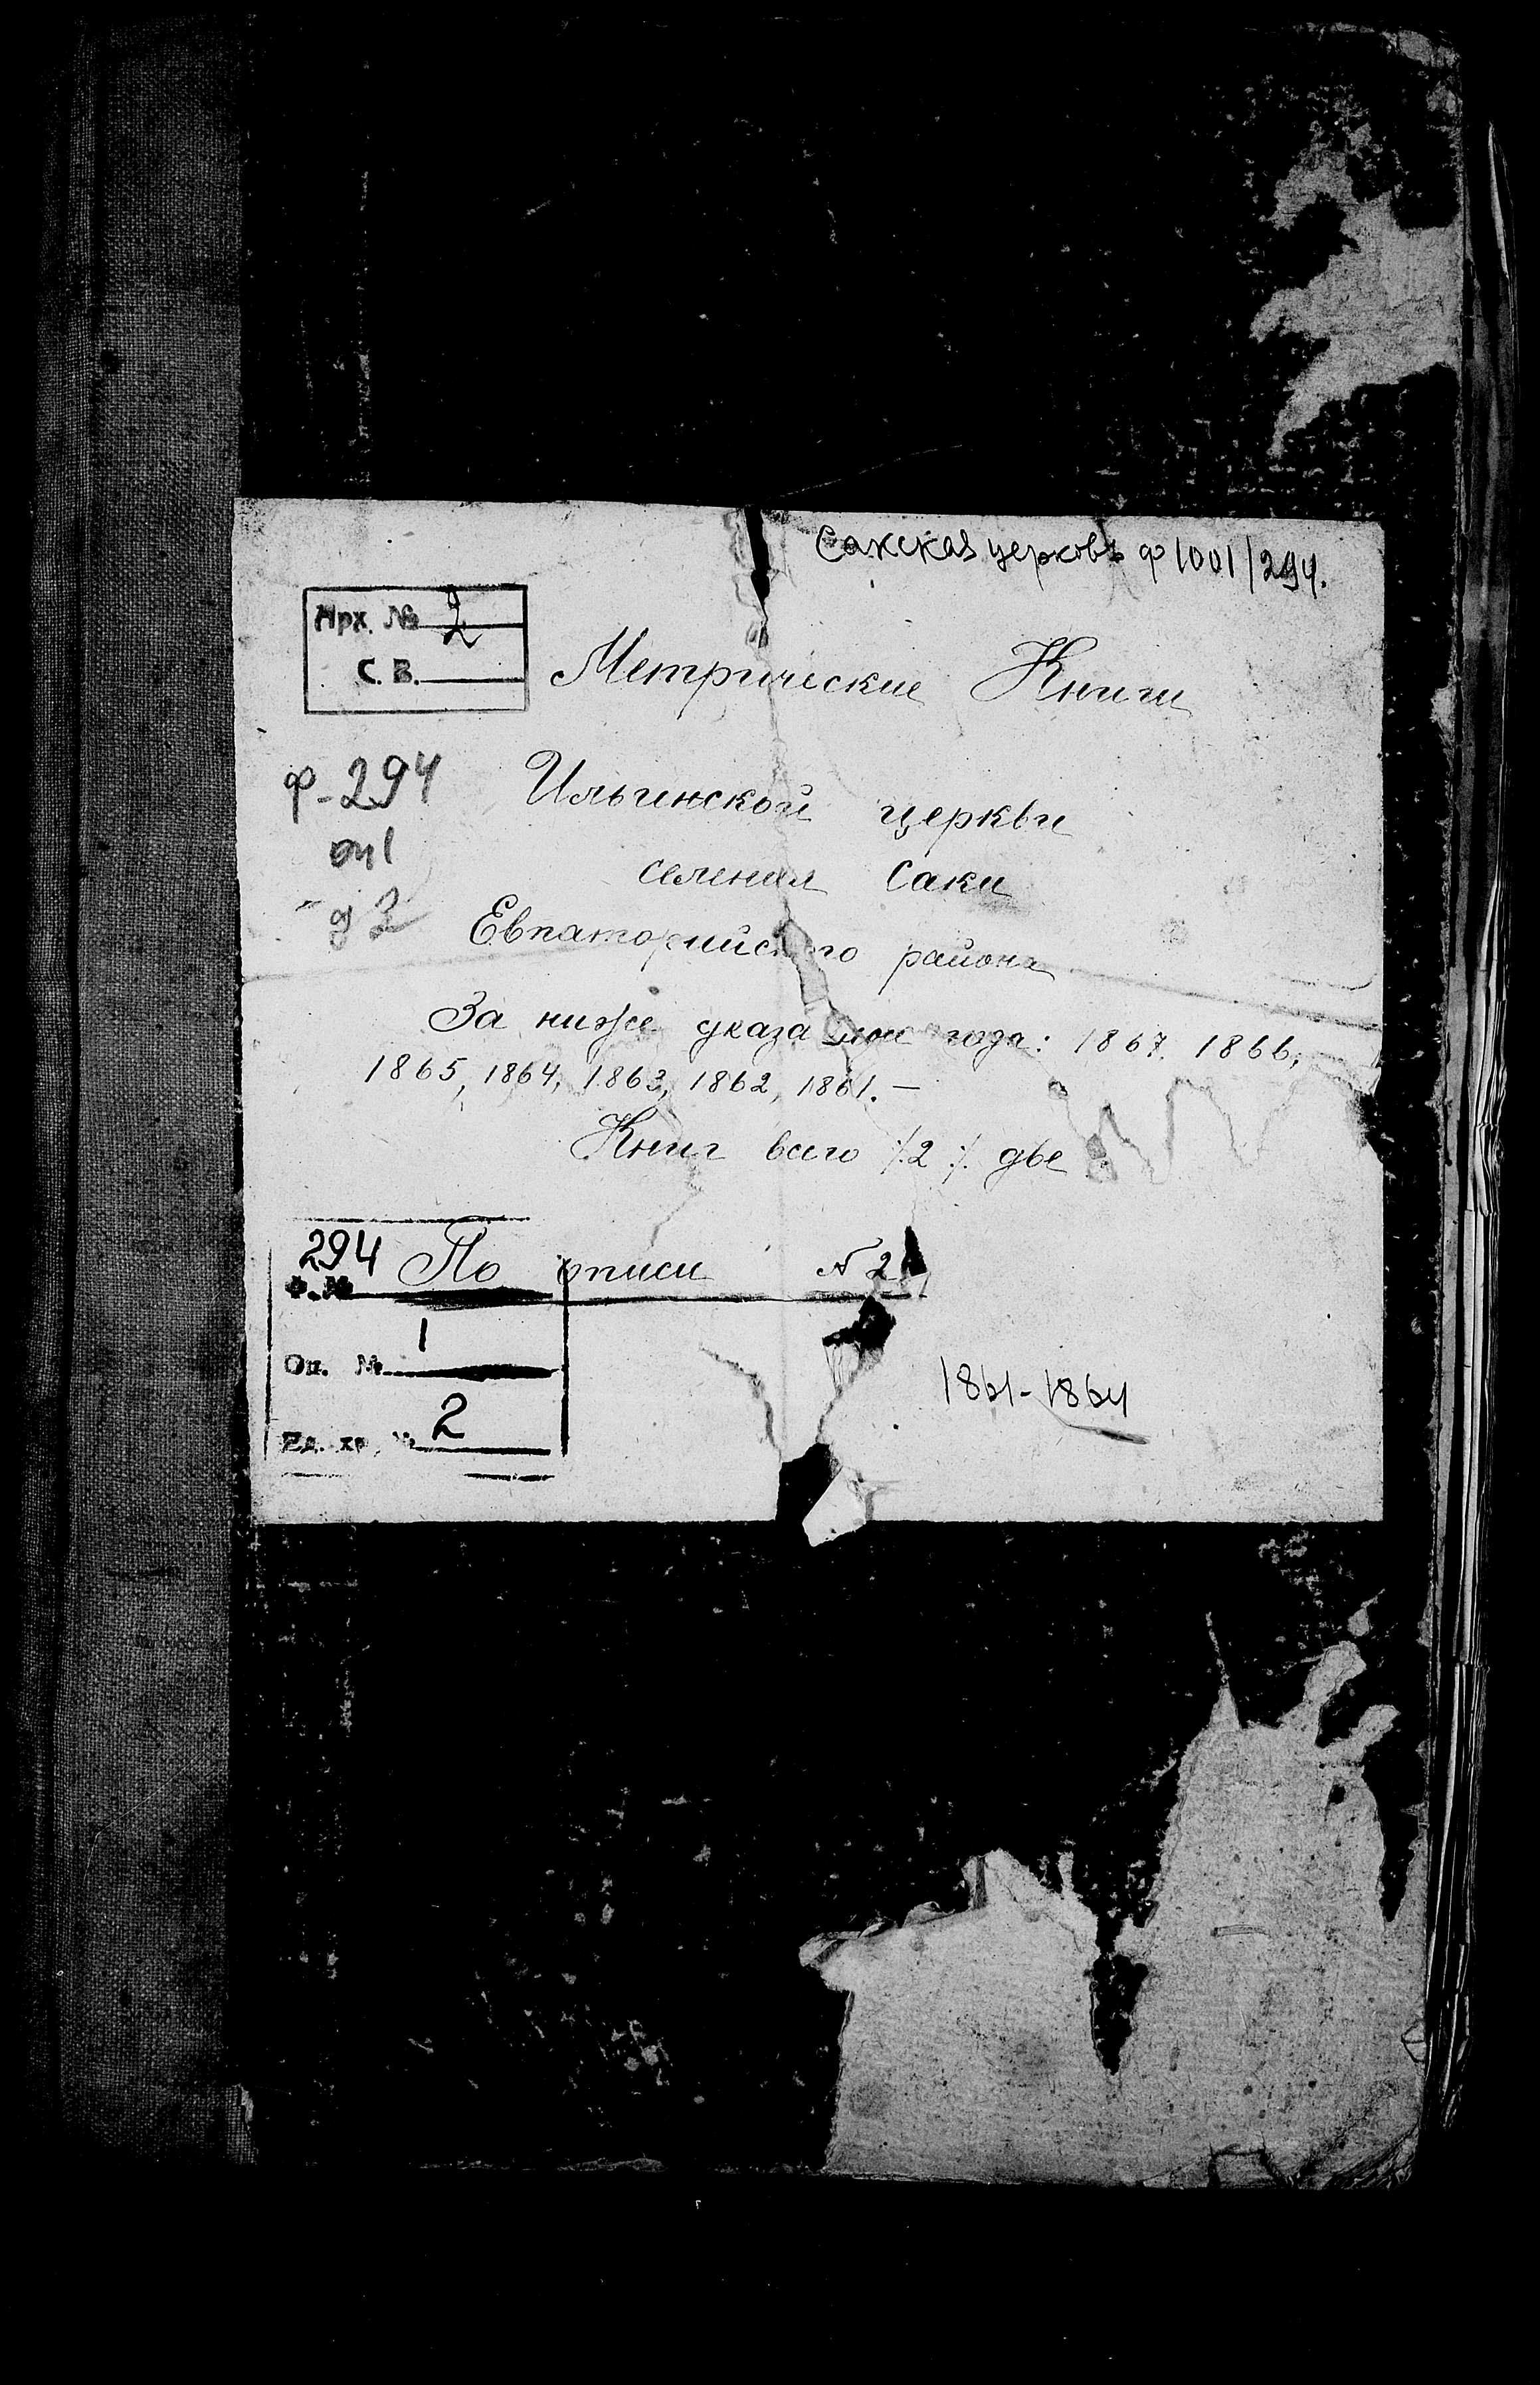 Сакская церковь ф 1001/294.
Арх. № 2
С. В.
Метрические Книги
ф-294
Ильинской церкви
оп 1
селения Саки
д 2
Евпаторийского района
За ниже указанные года: 1867. 1866,
1865, 1864, 1863, 1862, 1861. —
Книг всего /.2./. две
294
По описи № 2
Ф. №
1
Оп. №
1861-1864
2
Ед. хр. №